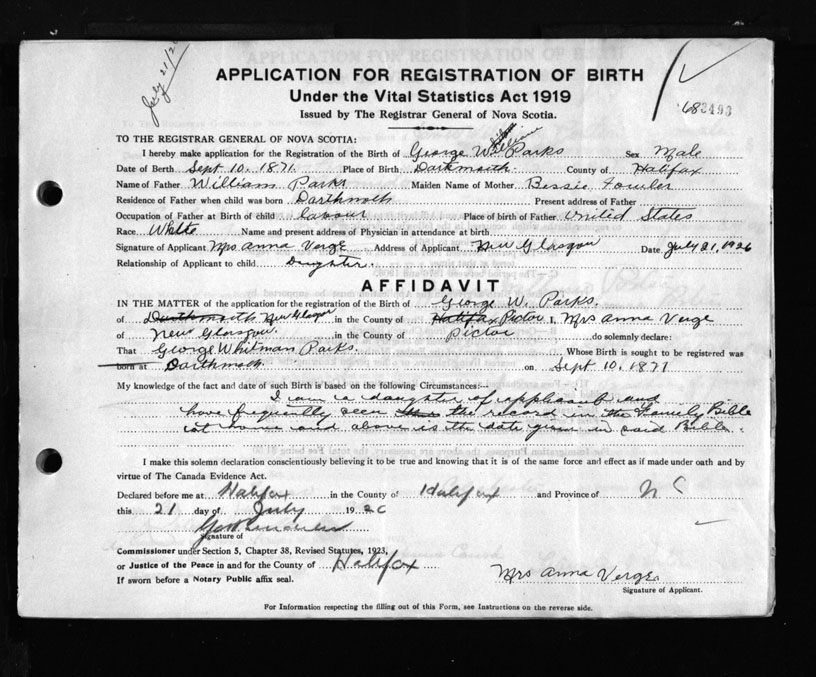 July 21/26
APPLICATION FOR REGISTRATION OF BIRTH
Under the Vital Statistics Act 1919
Issued by The Registrar General of Nova Scotia.
682493
TO THE REGISTRAR GENERAL OF NOVA SCOTIA:
I hereby make application for the Registration of the Birth of George William Parks Sex Male
Date of Birth Sept 10. 1871. Place of Birth Dartmouth County of Halifax
Name of Father William Parks Maiden Name of Mother Bessie Fowler
Residence of Father when child was born Dartmoth Present address of Father
Occupation of Father at Birth of child labour Place of birth of Father United States
Race White Name and present address of Physician in attendance at birth
Signature of Applicant Mrs Anna Verge Address of Applicant New Glasgow Date July 21, 1926
Relationship of Applicant to child Daughter.
AFFIDAVIT
IN THE MATTER of the application for the registration of the Birth of George W. Parks.
of Dartmouth New Glasgow in the County of Halifax Pictou I, Mrs Anna Verge
of New Glasgow. in the County of Pictou do solemnly declare:
That George Whitman Parks. Whose Birth is sought to be registered was
born at Darthmoth on Sept 10. 1871
My knowledge of the fact and date of such Birth is based on the following Circumstances:—
I am a daughter of applicant and
have frequently seen the record in the Family Bible
at home and above is the date given in said Bible.
I make this solemn declaration conscientiously believing it to be true and knowing that it is of the same force and effect as if made under oath and by
virtue of The Canada Evidence Act.
Declared before me at Halifax in the County of Halifax and Province of N S
this 21 day of July 1926
Signature of
Commissioner under Section 5, Chapter 38, Revised Statutes, 1923,
or Justice of the Peace in and for the County of Halifax
If sworn before a Notary Public affix seal.
Mrs Anna Verge
Signature of Applicant.
For Information respecting the filling out of this Form, see Instructions on the reverse side.